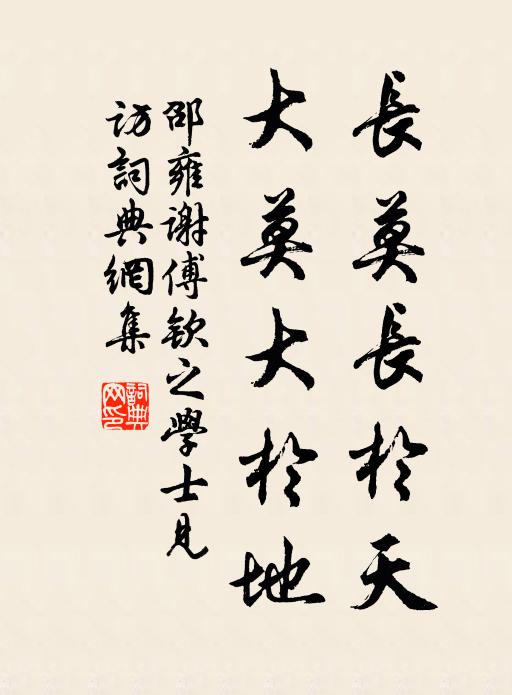 長莫長於天
大莫大於地
邵雍謝傅欽之學士見
訪詞典網集
詞典網印